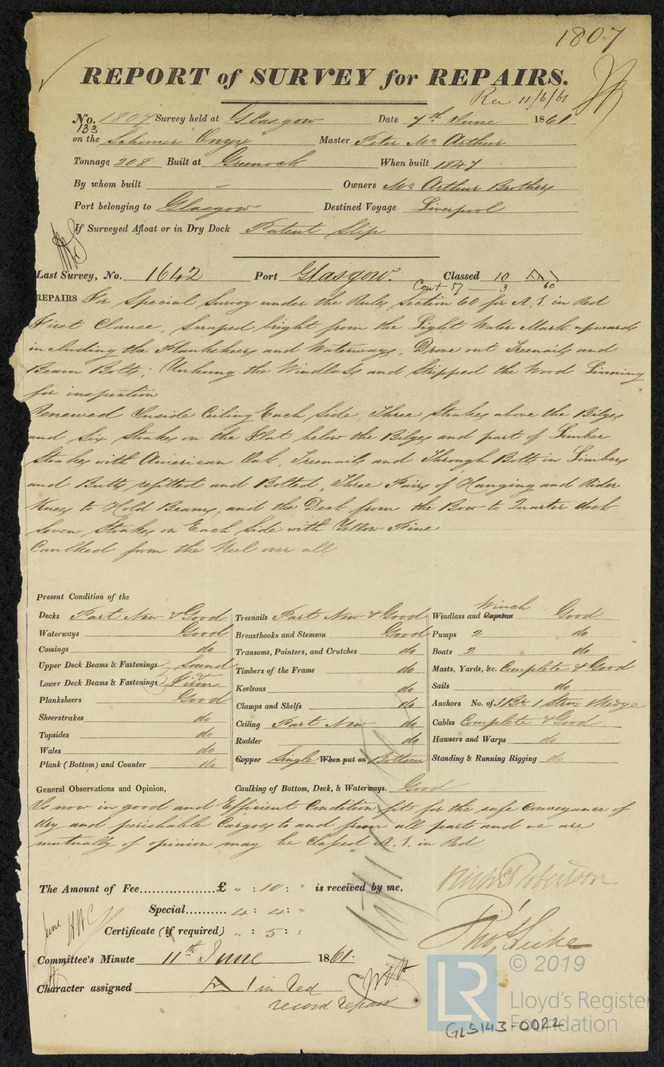 1807
REPORT of SURVEY for REPAIRS.
Rec 11/6/61
No. 1807 Survey held at Glasgow Date 7th June 1861.
133
on the Schooner Onyx Master Peter McArthur
Tonnage 208 Built at Greenock When built 1847
By whom built Owners McArthur Brothers
Port belonging to Glasgow Destined Voyage Liverpool
If Surveyed Afloat or in Dry Dock Patent Slip
Last Survey, No. 1642 Port Glasgow. Classed 10 A1
Cont 57 - 3 60
REPAIRS For Special Survey under the Rule, Section 60 for A.1 in Red
First Clause, Scraped bright from the Light Water Mark upwards
including the Planksheers and Waterways, Drove out Treenails and
Beam Bolts; Unhung the Windlass and Stripped the Wood Linning
for inspection
Renewed Inside Ceiling Each Side, Three Strakes above the Bilges
and Six Strakes on the Flat below the Bilges and part of Limber
Strakes with American Oak, Treenails and Through Bolts in Limbers
and Butts refitted and Bolted, Three Pairs of Hanging and Rider
Knees to Hold Beams, and the Deck from the Bow to Quarter deck
Seven Strakes on Each Side with Yellow Pine
Caulked from the Keel over all
Present Condition of the
Decks Part New & Good
Waterways Good
Comings do
Upper Deck Beams & Fastenings Sound
Lower Deck Beams & Fastenings Firm
Planksheers Good
Sheerstrakes do
Topsides do
Wales do
Plank (Bottom) and Counter do
Treenails Part New & Good
Breasthooks and Stemson Good
Transoms, Pointers, and Crutches do
Timbers of the Frame do
Keelsons do
Clamps and Shelfs do
Ceiling Part New do
Rudder do
Copper Single When put on Bottom
Caulking of Bottom, Deck, & Waterways. Good
Winch
Windlass and Capstan Good
Pumps 2 do
Boats 2 do
Masts, Yards, &c. Complete & Good
Sails do
Anchors No. of 3 Br 1 Stream 1 Kedge
Cables Complete & Good
Hawsers and Warps do
Standing & Running Rigging do
General Observations and Opinion,
Is now in good and Efficient Condition fit for the safe Conveyance of
dry and perishable Cargoes to and from all parts and we are
mutually of opinion may be Classed A.1. in Red
The Amount of Fee............... £ " : 10 : " is received by me,
Special......... 4 : 4 : "
Certificate (if required) " : 5 : "
Robertson
Committee's Minute 11th June 1861.
Character assigned A 1 in red
record repairs
© 2019
LR
Lloyd's Register
Foundation
GLS143-0022